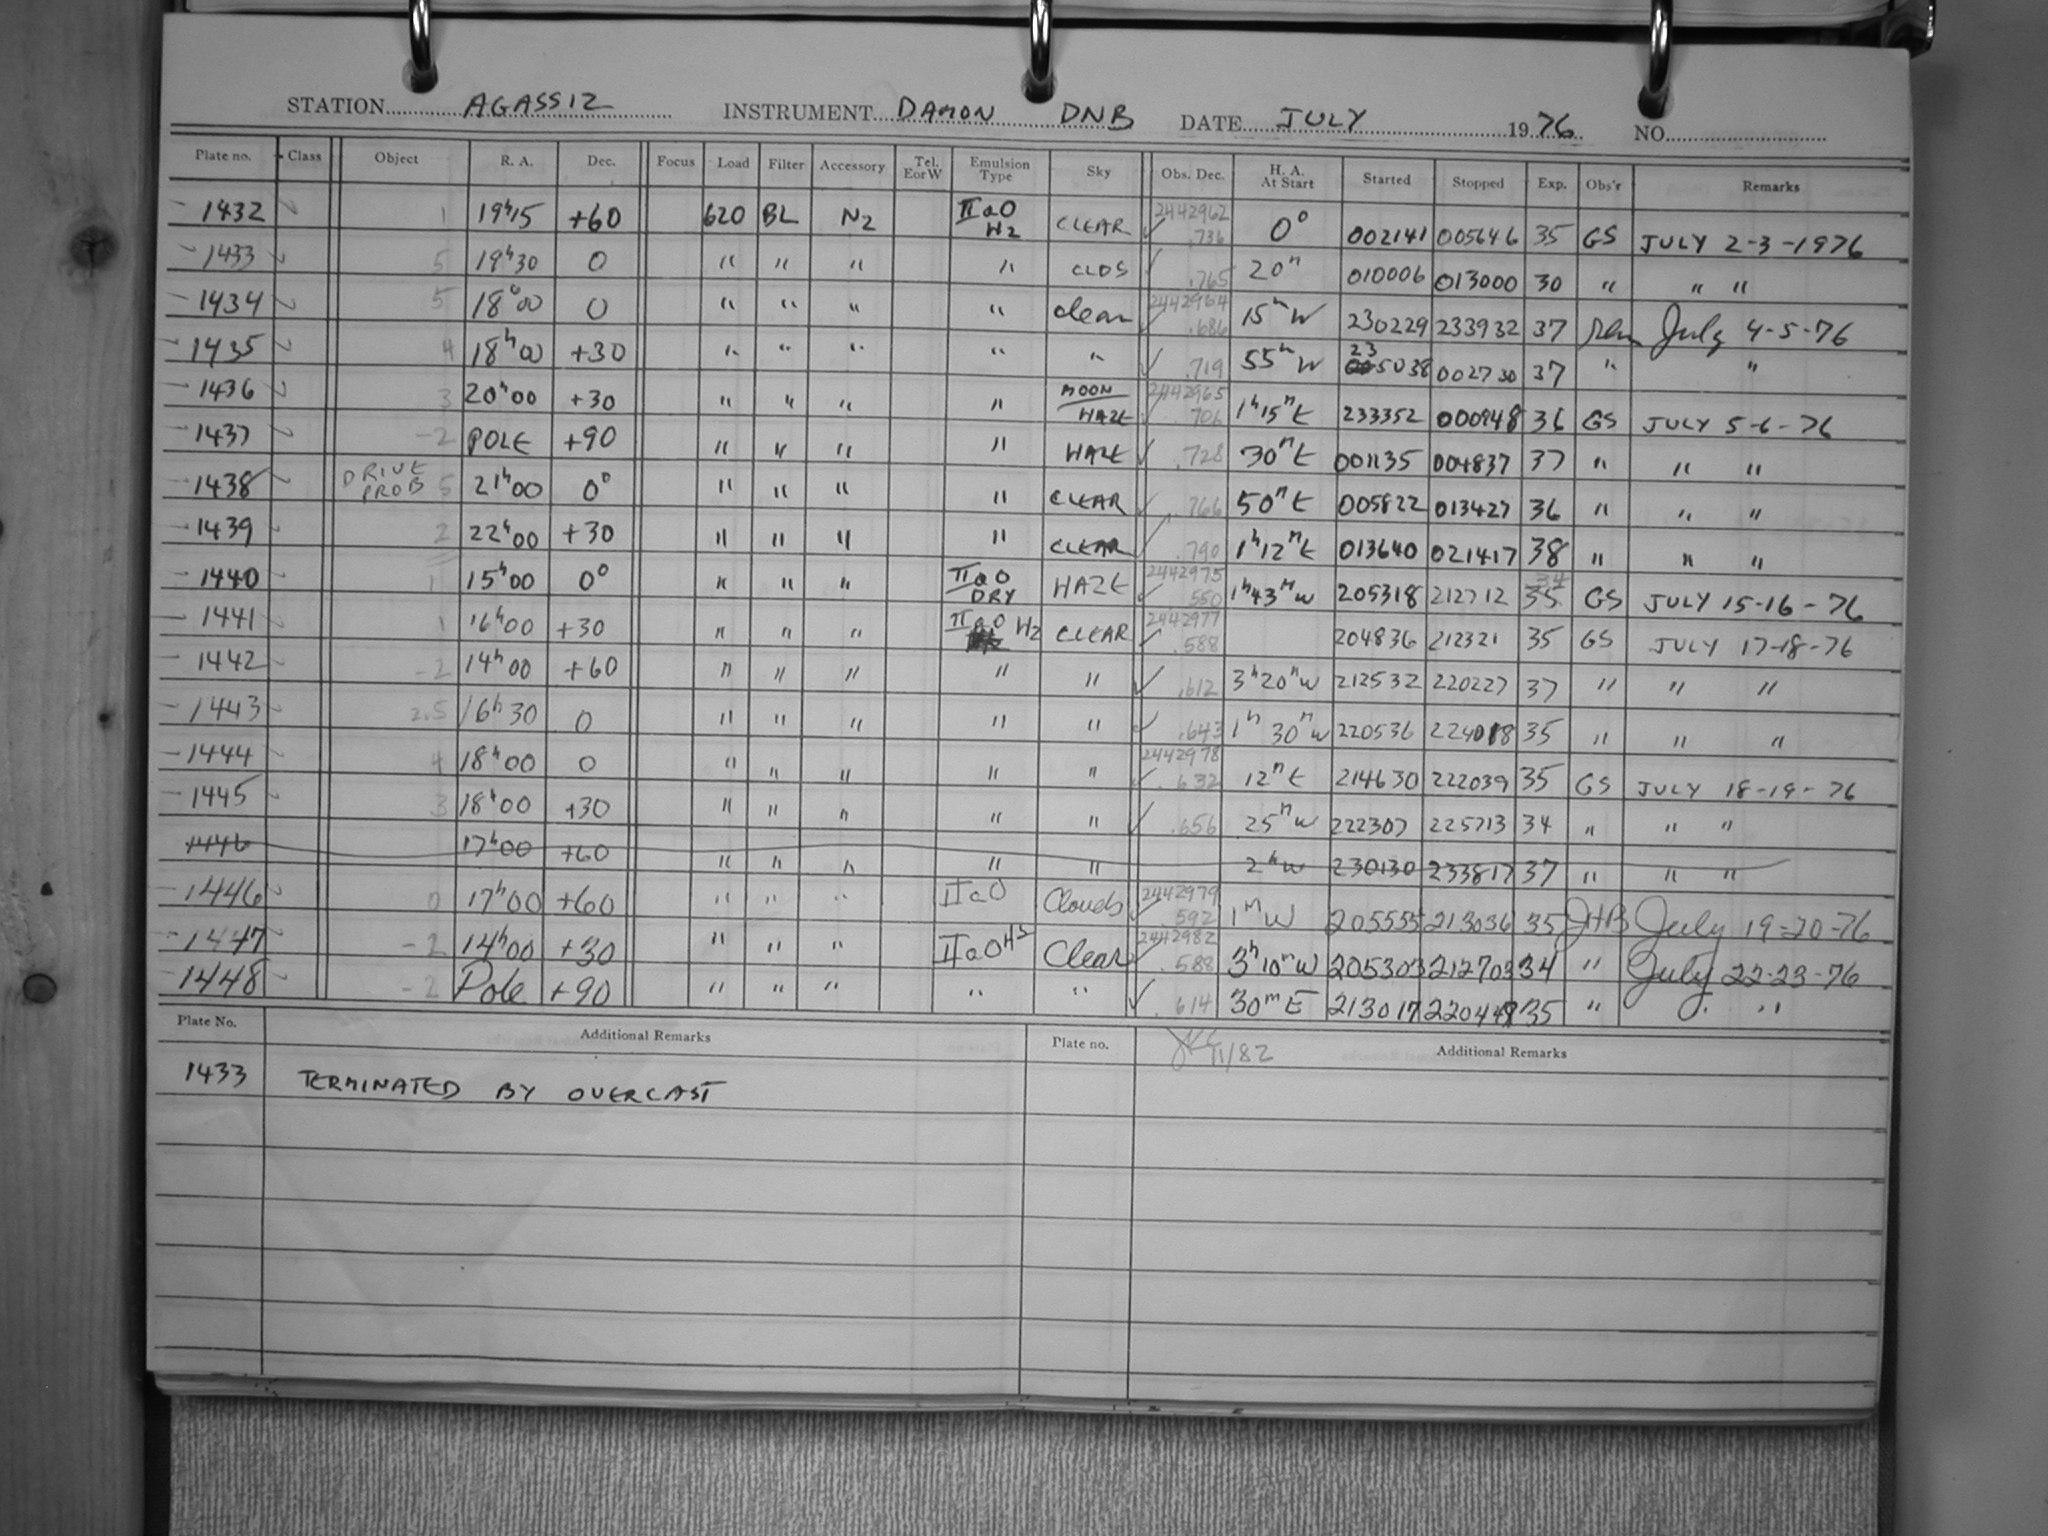 STATION AGASSIZ INSTRUMENT DAMON DNB DATE JULY 1976 NO.
Plate no. Class Object R. A. Dec. Focus Load Filter Accessory Tel. E or W Emulsion Type Sky Obs. Dec. H. A. At Start Started Stopped Exp. Obs'r Remarks
1432 1 19h15 +60 620 BL N2 IIaO H2 CLEAR 2442962 .736 0° 002141 005646 35 GS JULY 2-3-1976
1433 5 19h30 0 " " " " CLDS .765 20m 010006 013000 30 " " "
1434 5 18h00 0 " " " " clear 2442964 .686 15m W 230229 233932 37 July 4-5-76
1435 4 18h00 +30 " " " " " .719 55m W 235038 002730 37 " "
1436 3 20h00 +30 " " " " MOON HAZE 2442965 .706 1h15m E 233352 000948 36 GS JULY 5-6-76
1437 -2 POLE +90 " " " " HAZE .728 30m E 001135 004837 37 " " "
1438 DRIVE PROB 5 21h00 0° " " " " CLEAR .766 50m E 005822 013427 36 " " "
1439 2 22h00 +30 " " " " CLEAR .790 1h12m E 013640 021417 38 " " "
1440 1 15h00 0° " " " IIaO DRY HAZE 2442975 .550 1h43m W 205318 212712 35 34 GS JULY 15-16-76
1441 1 16h00 +30 " " " IIaO H2 CLEAR 2442977 .588 204836 212321 35 GS JULY 17-18-76
1442 -2 14h00 +60 " " " " " .612 3h20m W 212532 220227 37 " " "
1443 2.5 16h30 0 " " " " " .643 1h 30m W 220536 224018 35 " " "
1444 4 18h00 0 " " " " " 2442978 .632 12m E 214630 222039 35 GS JULY 18-19-76
1445 3 18h00 +30 " " " " " .656 25m W 222307 225713 34 " " "
1446 17h00 +60 " " " " " 2h W 230130 233817 37 " " "
1446 0 17h00 +60 " " " IIaO Clouds 2442979 .592 1m W 205555 213036 35 JHB July 19-20-76
1447 -2 14h00 +30 " " " IIaO Clear 2442982 .588 3h10m W 205303 212703 34 " July 22-23-76
1448 -2 Pole +90 " " " " " .614 30m E 213017 220449 35 " " "
Plate No. Additional Remarks Plate no. Additional Remarks
11/82
1433 TERMINATED BY OVERCAST